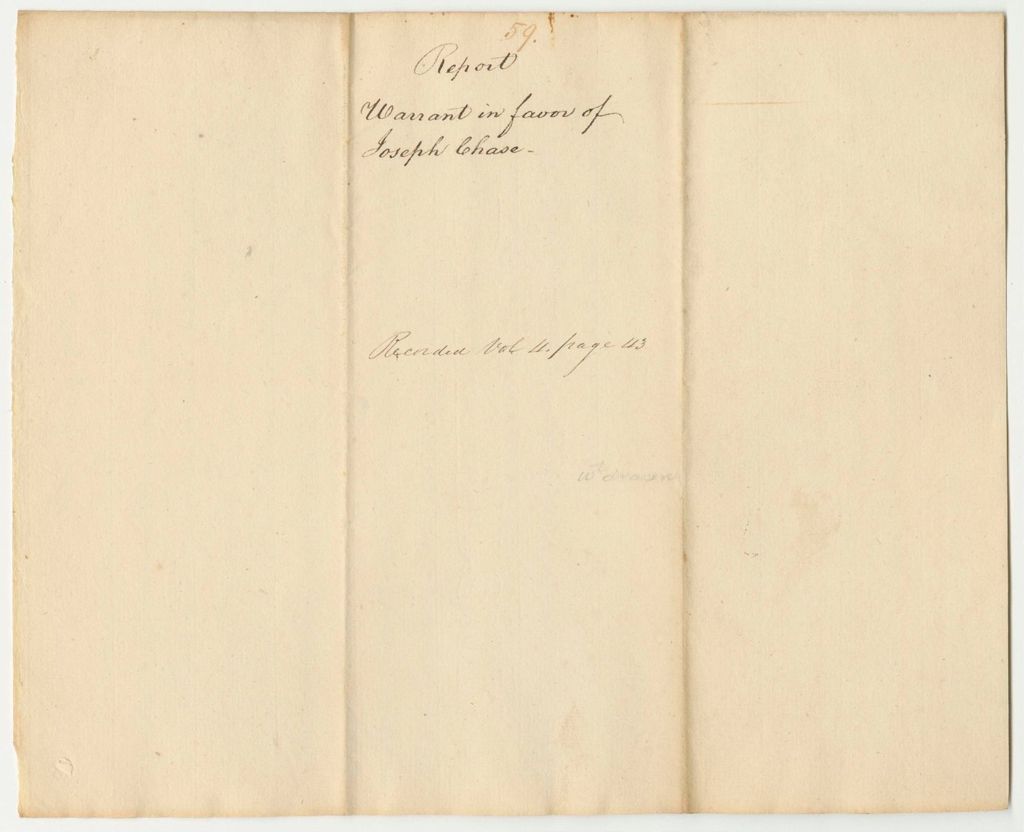 59.
Report
Warrant in favor of
Joseph Chase -
Recorded Vol 4. page 43
wt drawn